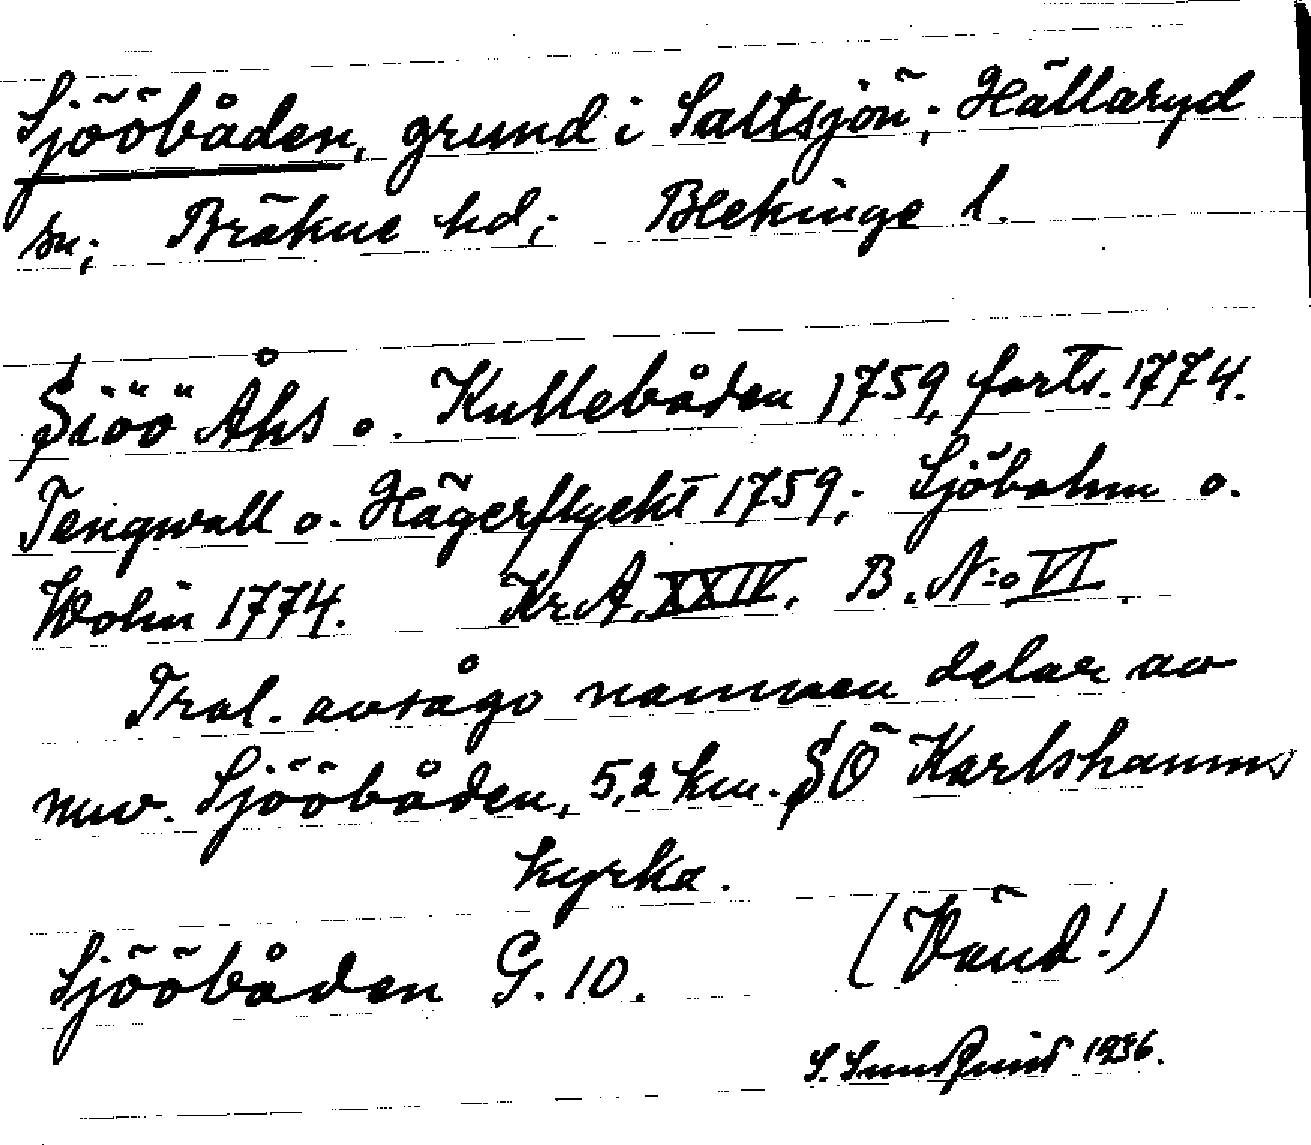 Sjööbåden, grund i Saltsjön; Hällaryd
sn; Bräkne hd; Blekinge l.
Siöö Åhs o. Kullebåden 1759, forts. 1774.
Tengwall o. Hägerflyckt 1759; Sjöbohm o.
Wolin 1774. Kr.A. XXIV. B. N:o VI.
Trol. avsågo namnen delar av
nuv. Sjööbåden, 5,2 km. SÖ Karlshamns
kyrka.
Sjööbåden G. 10. (Vänd!)
S. Sundquist 1936.